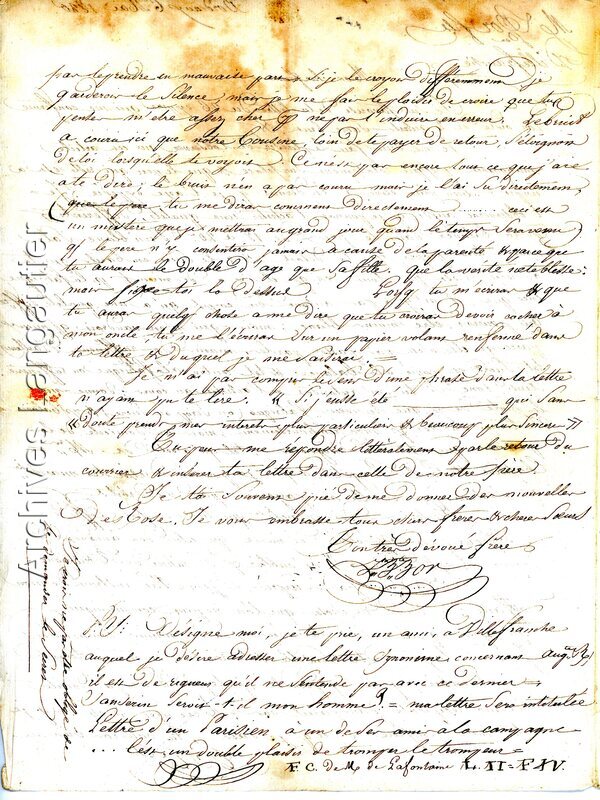 par le prendre en mauvaise part. Si je le croyois différemment je
garderois le silence; mais je me fais le plaisir de croire que tu
penses m'être assez cher pr ne pas t'induire en erreur. Le bruit
a couru ici que notre Cousine, loin de te payer de retour, S'éloignoit
de toi lorsqu'elle te voyoit. Ce n'est pas encore tout ce que j'ai
a te dire; le bruit n'en a pas couru mais je l'ai Su directement,
que le pere tu me diras comment directement ceci est
un mistere que je mettrai au grand jour quand le temps sera venu
que le pere n'y consentira jamais a cause de la parenté & parce que
tu aurais le double d'age que Sa fille. que la verité ne te blesse:
mon fixe-toi la dessus. Losq. tu m'écriras & que
tu auras quelq chose a me dire que tu croiras devoir cacher à
mon oncle, tu me l'écriras Sur un papier volant renfermé dans
ta lettre & duquel je me Saisirai. =
Je n'ai pas compris le sens d'une phrase dans ta lettre
n'ayant pu te lire. « Si j'eusse été qui sans
« doute prend mes interets plus particuliers & beaucoup plus sincere »
Tu peux me répondre litteralement par le retour du
courrier & insérer ta lettre dans celle de notre frère
Je te Souviens pas de me donner des nouvelles
de Rose. Je vous embrasse tous chers frères & chere Soeurs
Ton très dévoué frère
P.S: Désigne moi, je te prie, un ami, à Villefranche
auquel je désire adresser une lettre Anonime concernant augte
il est de rigueur qu'il ne S'entende pas avec ce dernier
Sanserin Seroit-t-il mon homme? = ma lettre Sera intitulée
Lettre d'un Parisien a un de Ses ami a la campagne
... C'est un double plaisir de tromper le trompeur =
F C. De M. de Lafontaine L. II = F XV.
Je crois ne pas être obligé de
te demander le Secret
Archives Langautier